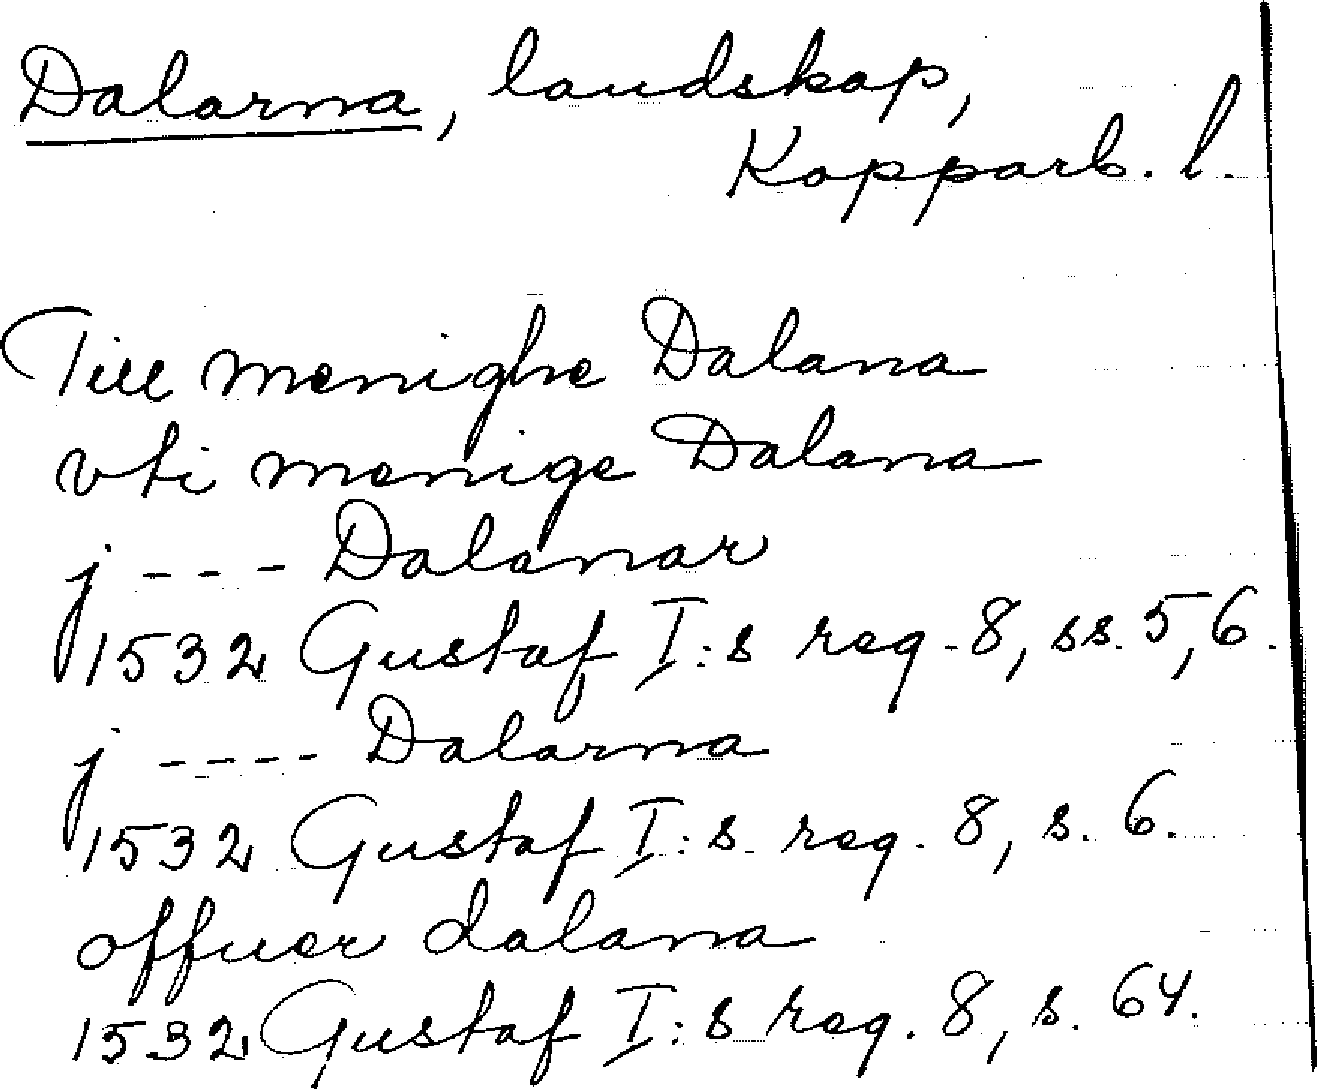 Dalarna, landskap,
Kopparb. l.
Till menighe Dalana
vti menige Dalana
j - - - Dalanar
1532 Gustaf I:s reg. 8, ss. 5, 6.
j - - - - Dalarna
1532 Gustaf I:s reg. 8, s. 6.
offuer dalana
1532 Gustaf I:s reg. 8, s. 64.